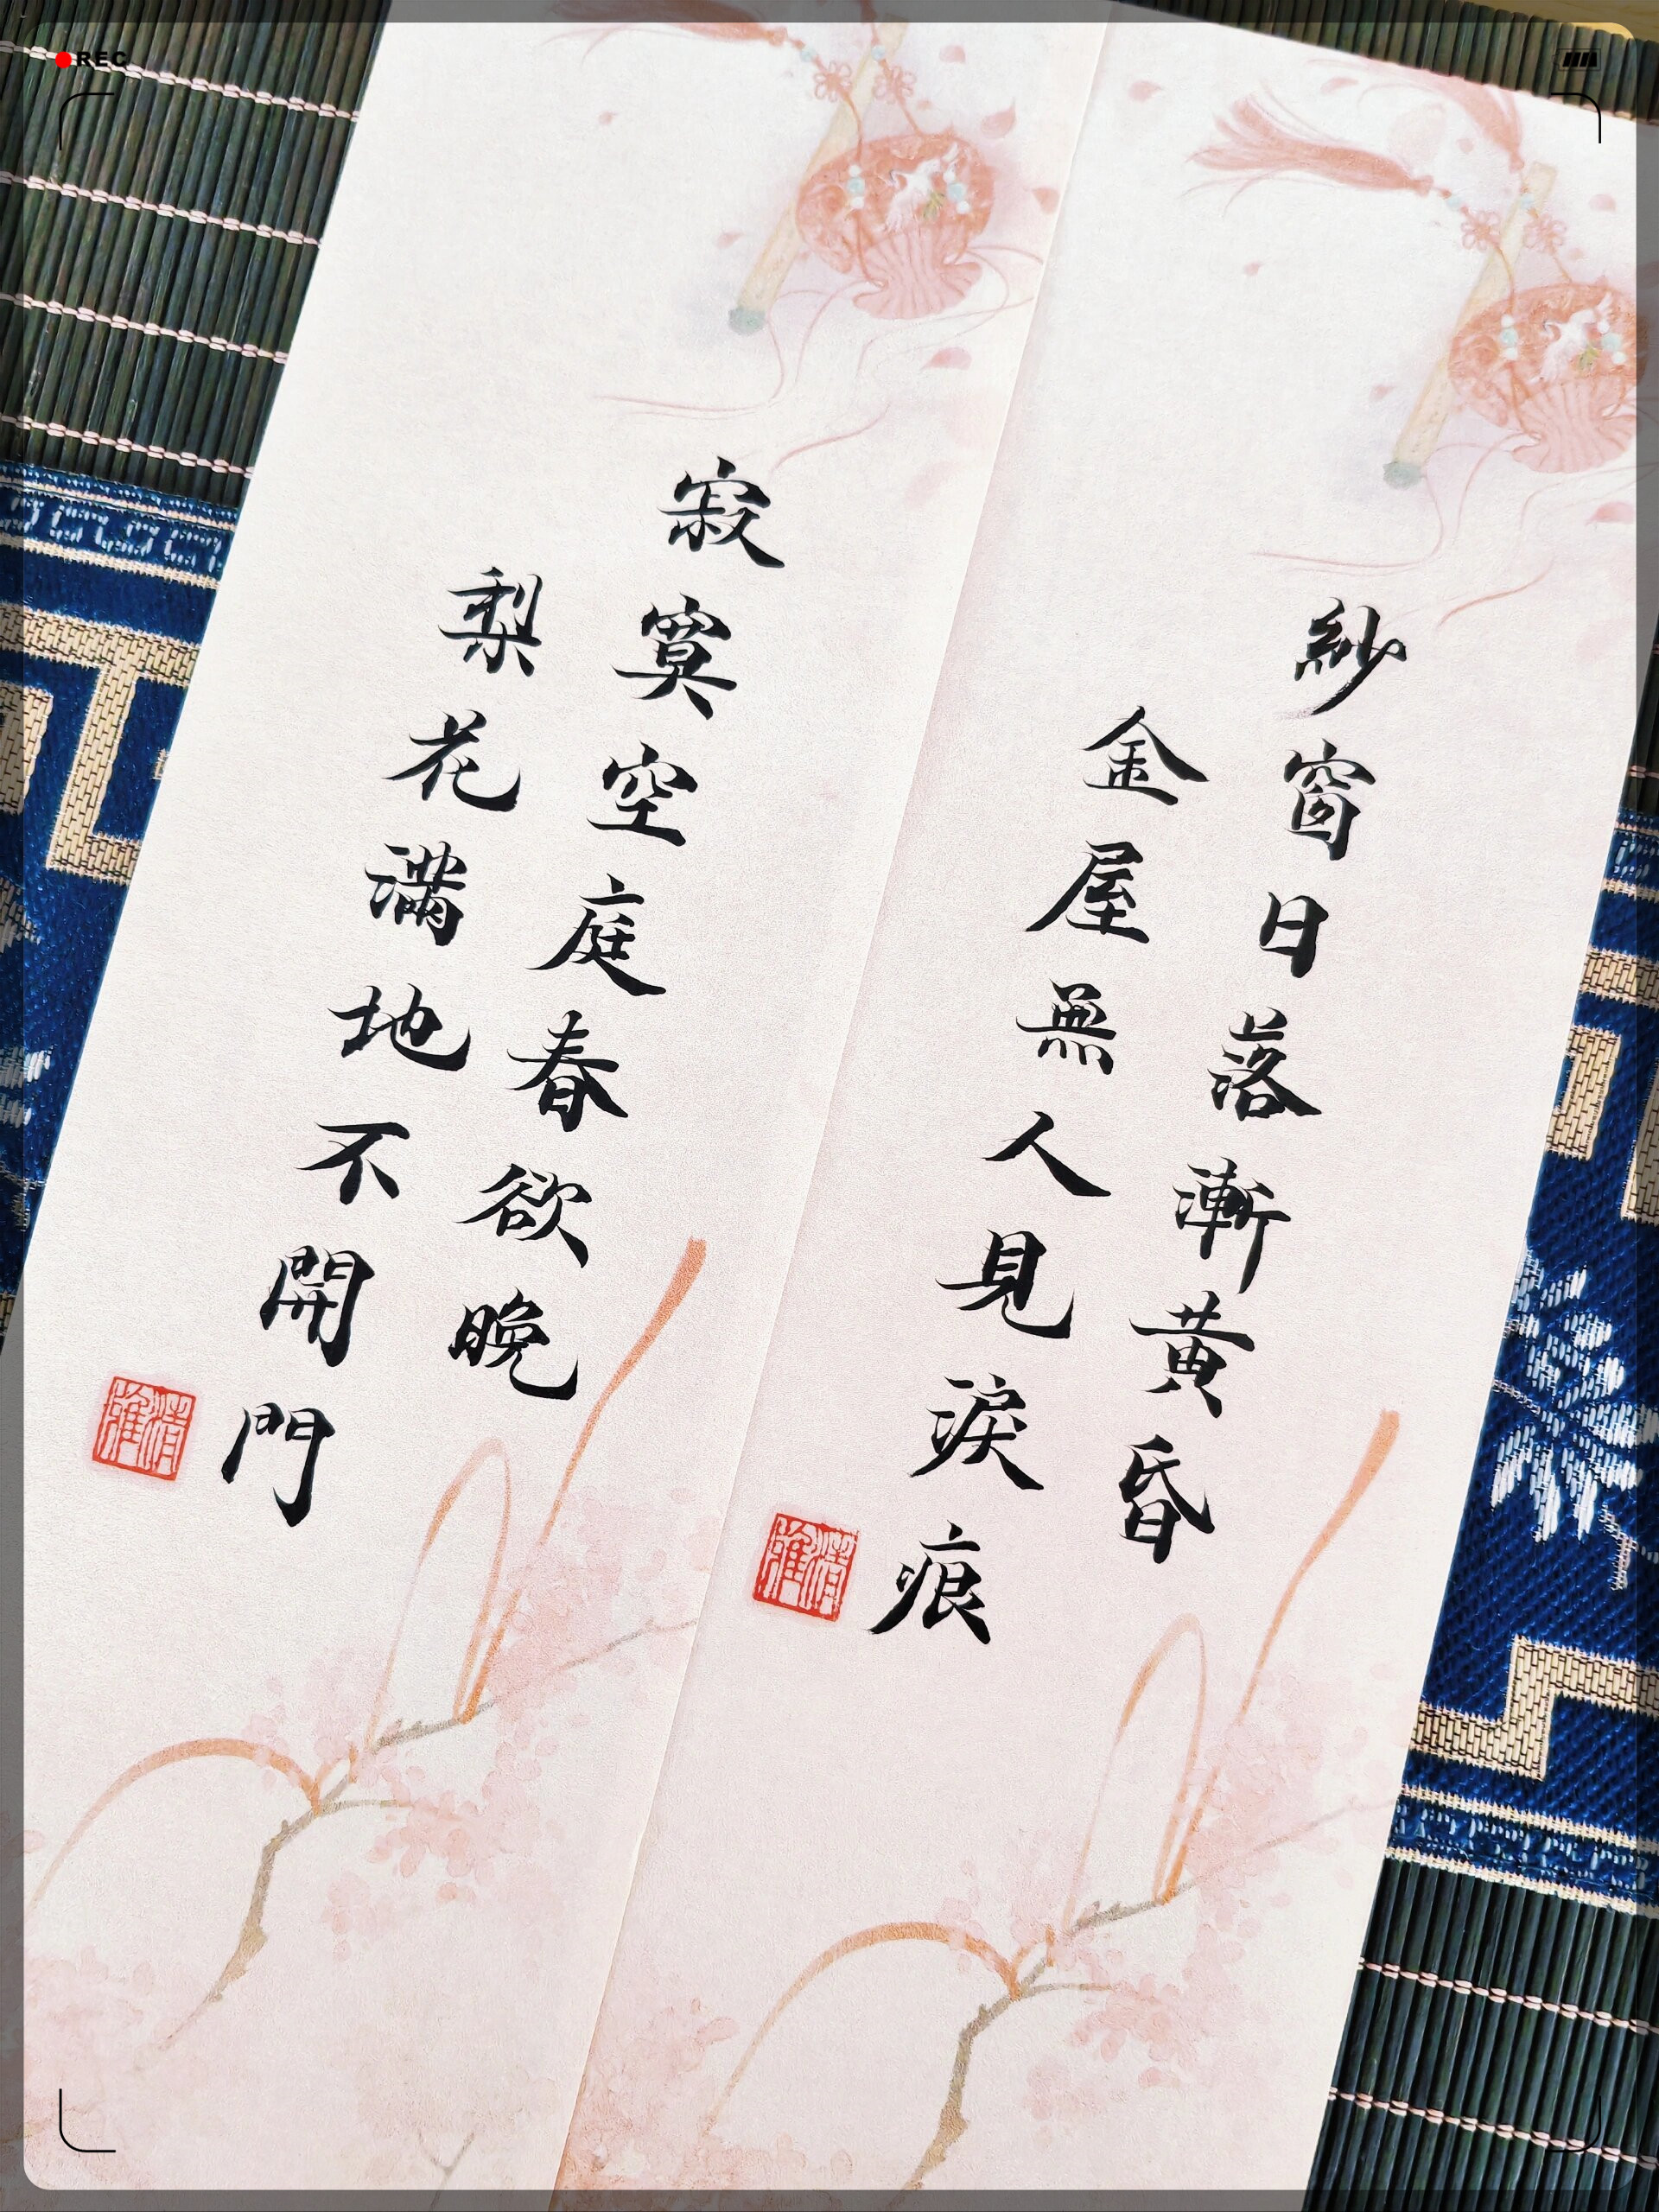 REC
紗窗日落漸黄昏
金屋無人見淚痕
寂寞空庭春欲晚
梨花滿地不開門
清雅
清雅